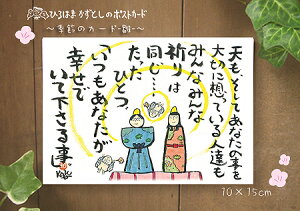 ひろはまかずとしのポストカード
～季節のカード・雛～
天も、そしてあなたの事を
大切に想っている人達も
みんなみんな
祈りは
同じ…
ただ、ひとつ。
「いつもあなたが
幸せで
いて下さる事」
10×15cm